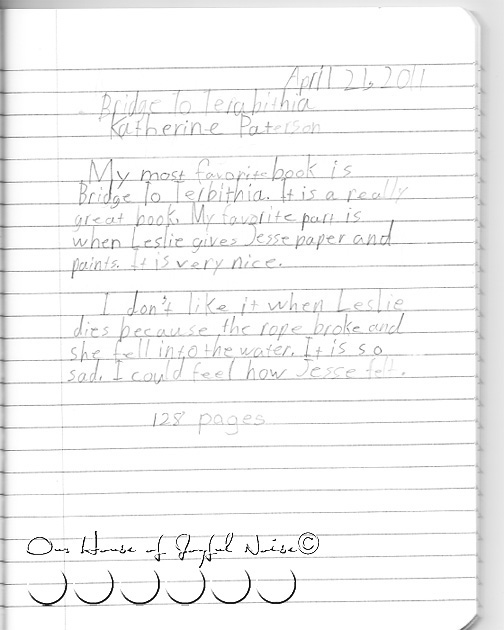 April 21, 2011
Bridge To Terabithia
Katherine Paterson
My most favorite book is
Bridge To Terbithia. It is a really
great book. My favorite part is
when Leslie gives Jesse paper and
paints. It is very nice.
I don't like it when Leslie
dies because the rope broke and
she fell into the water. It is so
sad. I could feel how Jesse felt.
128 pages
Our House of Joyful Noise©